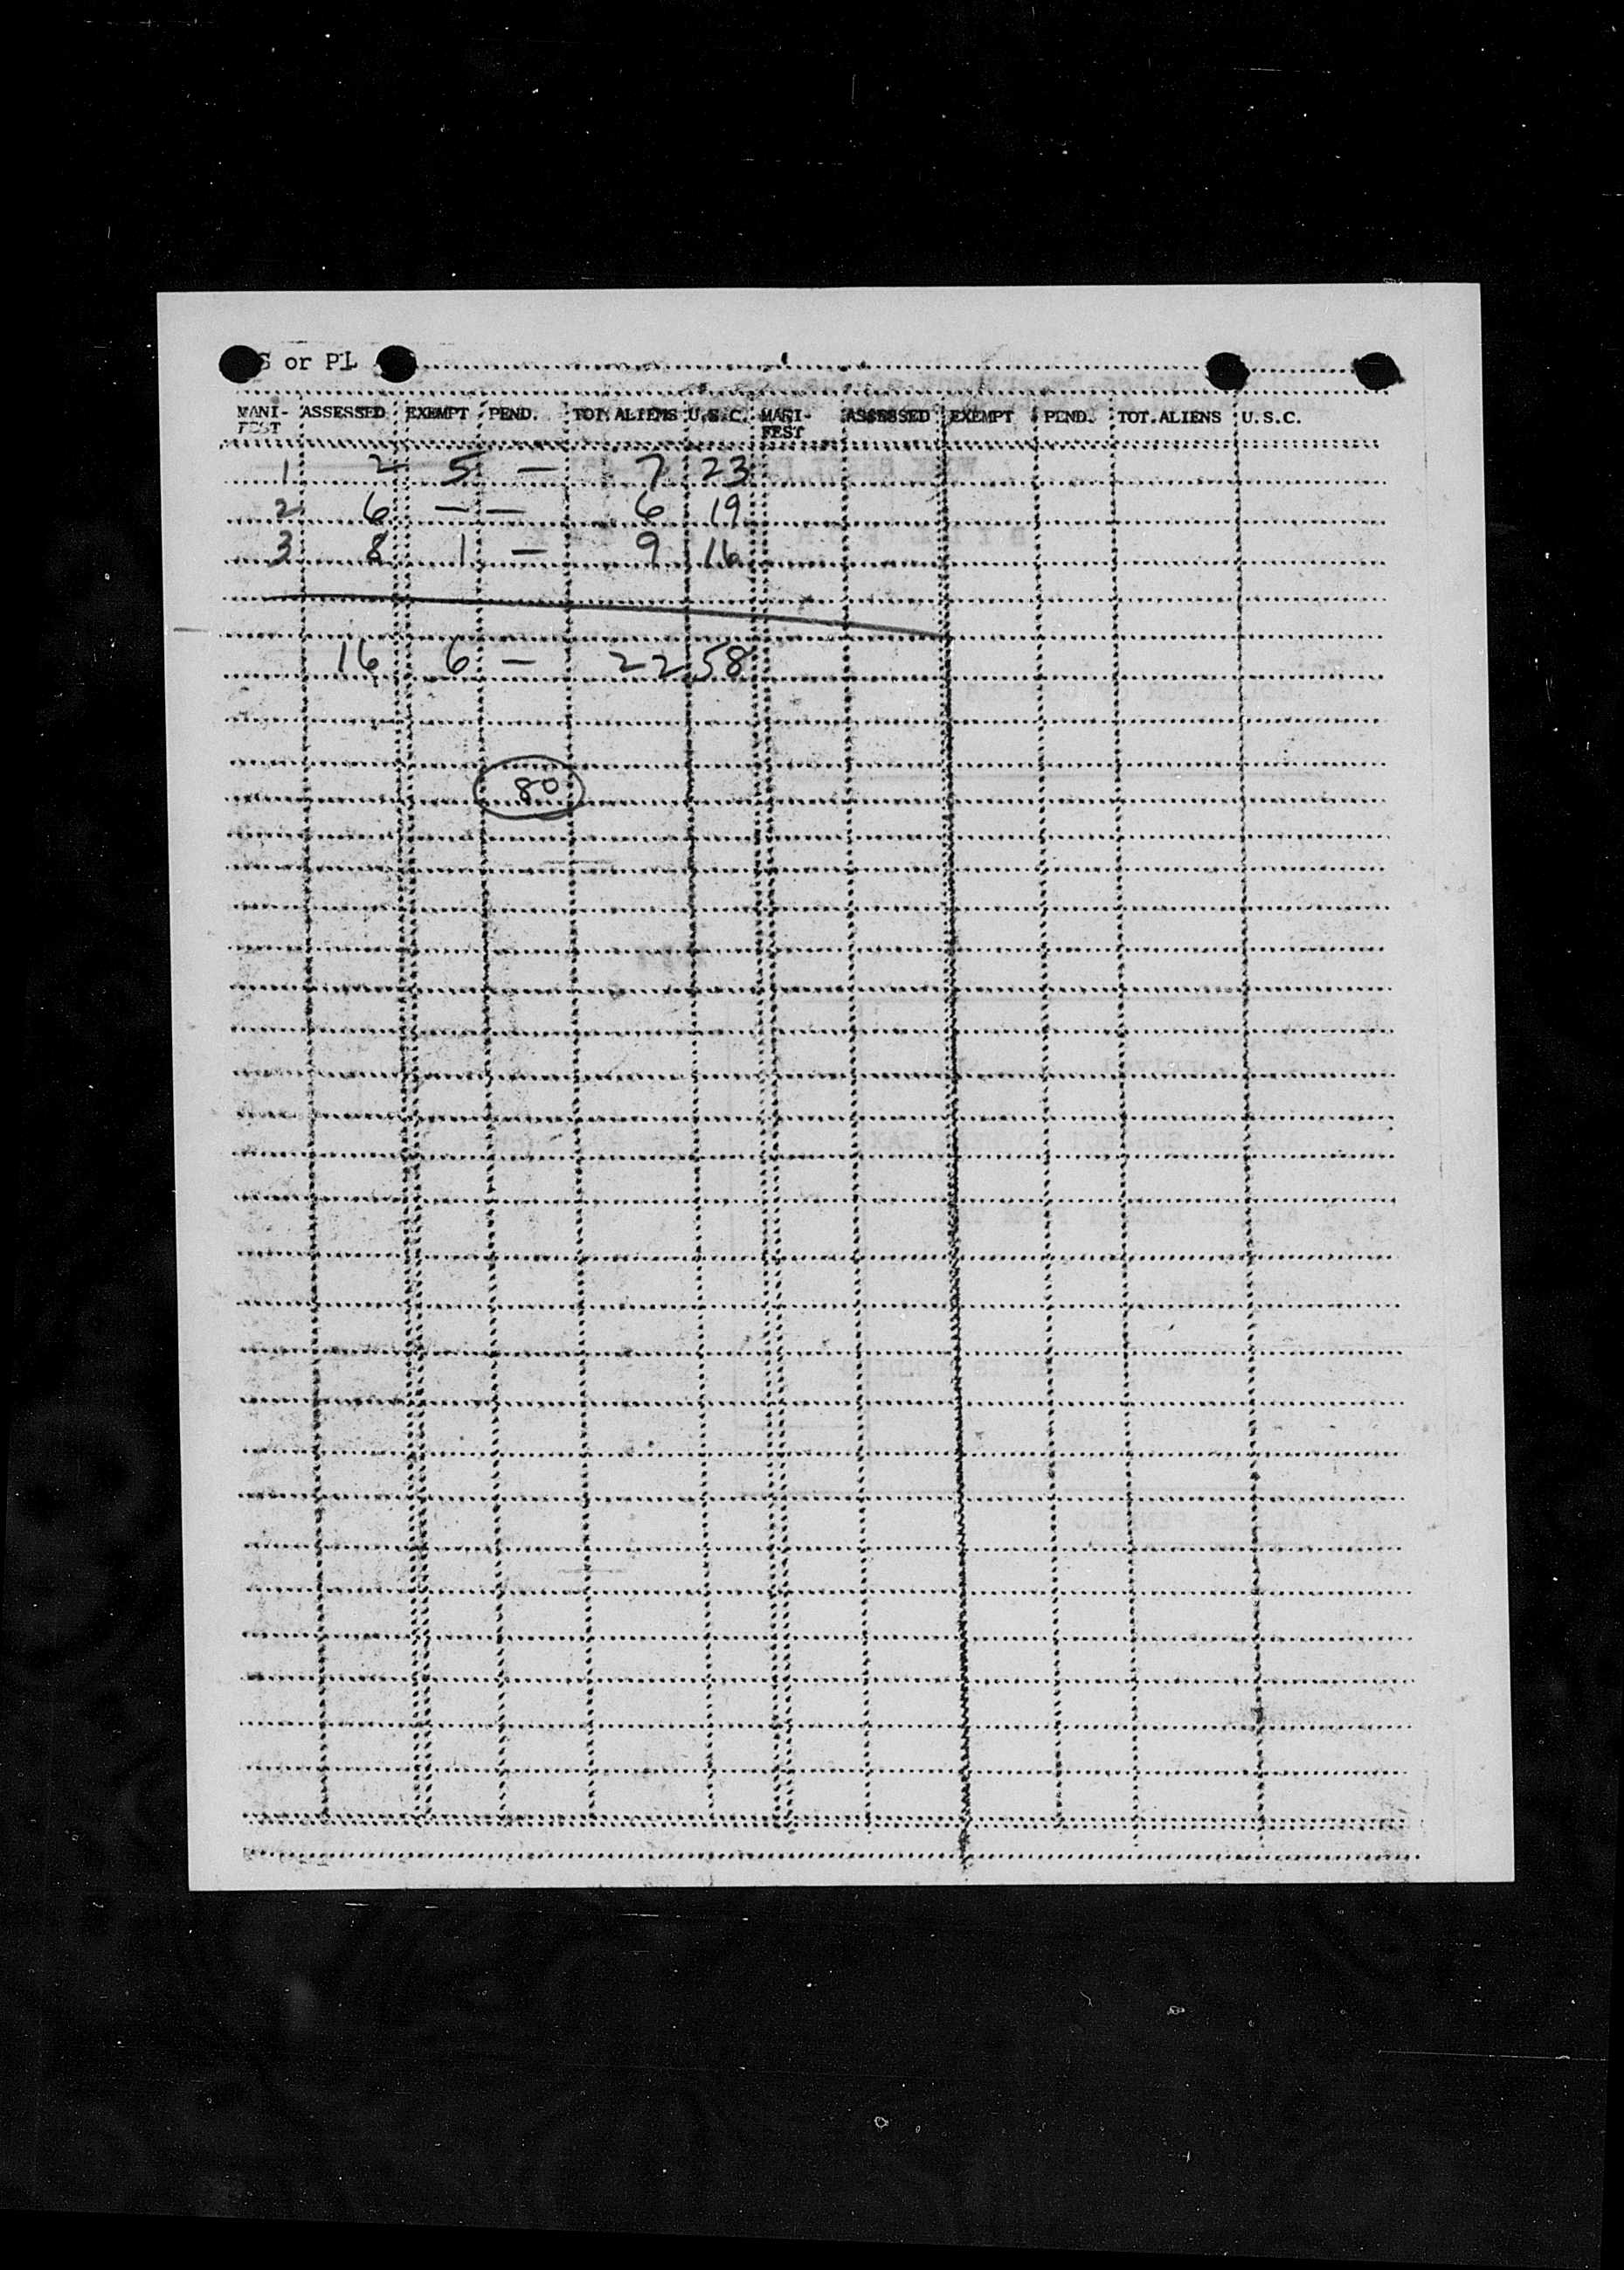 S or PL
MANI- ASSESSED EXEMPT PEND. TOT. ALIENS U.S.C. MANI- ASSESSED EXEMPT PEND. TOT. ALIENS U.S.C.
FEST FEST
1 2 5 — 7 23
2 6 — — 6 19
3 8 1 — 9 16
16 6 — 22 58
80